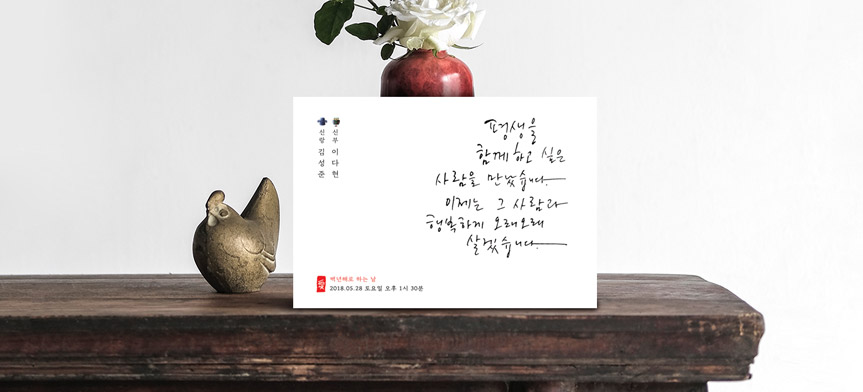 평생을
함께하고 싶은
사람을 만났습니다.
이제는 그 사람과
행복하게 오래오래
살겠습니다.
신랑 김성준
신부 이다현
백년해로 하는 날
2018.05.28 토요일 오후 1시 30분